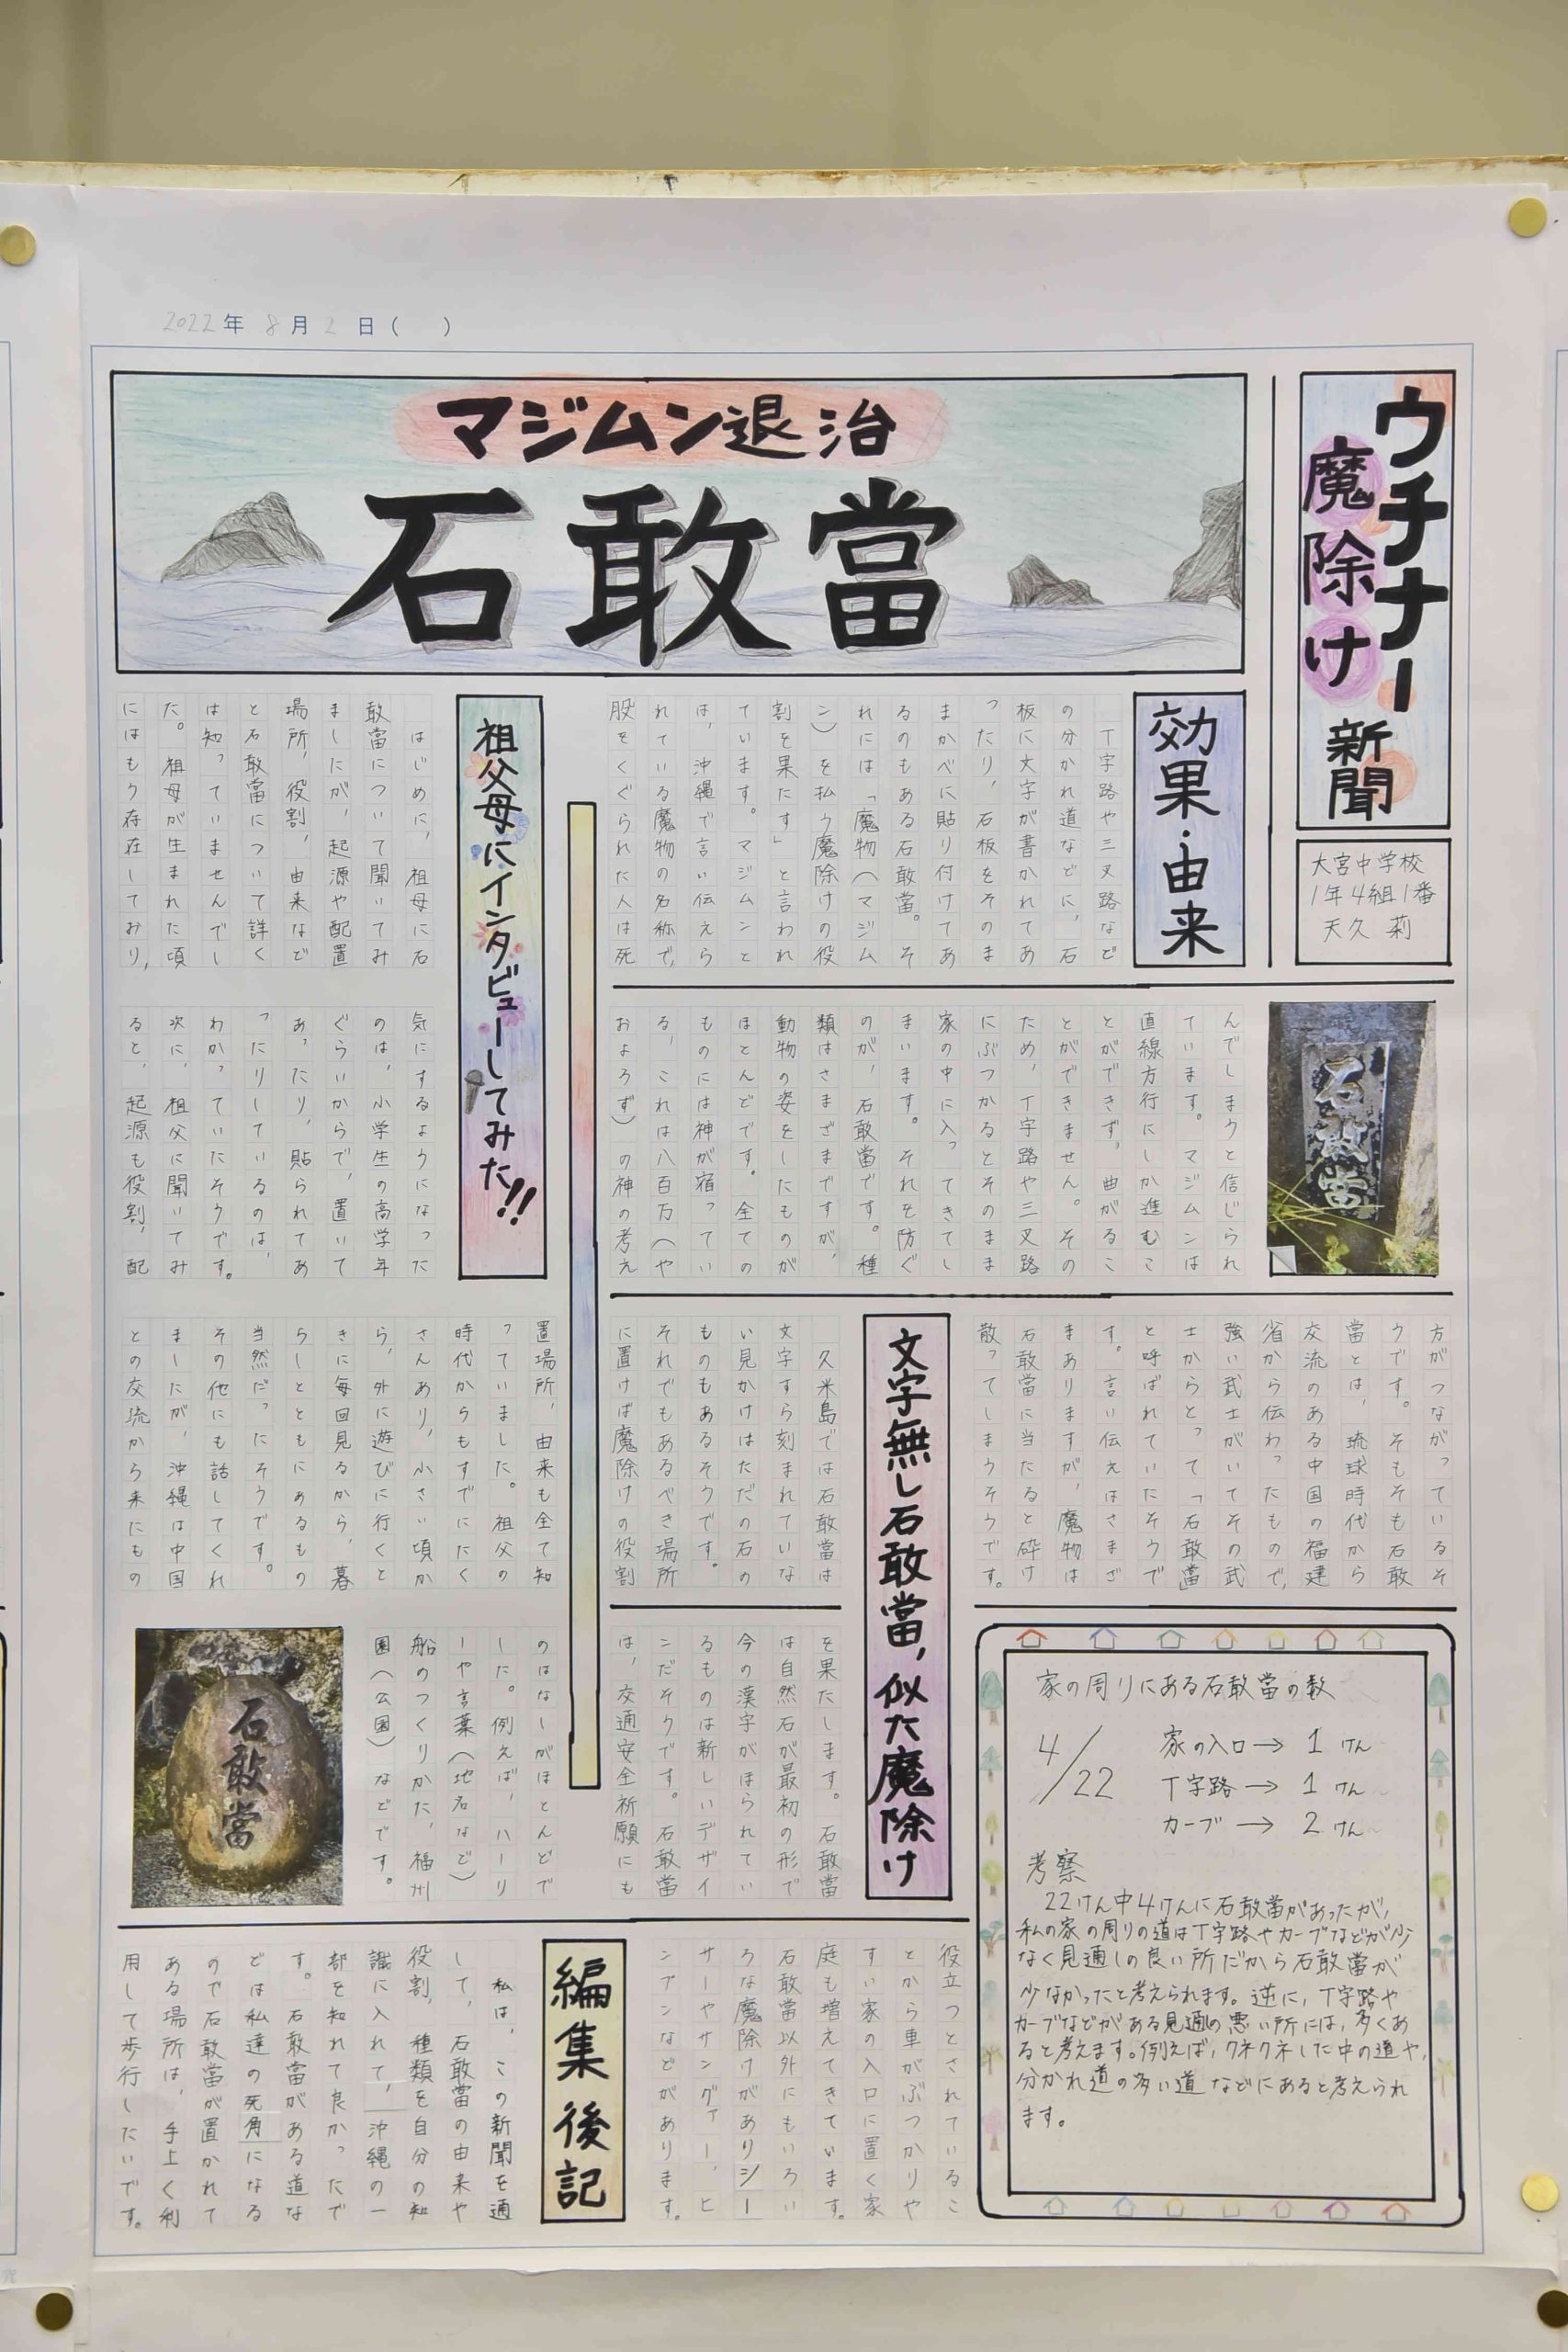 2022年 8月 2日( )
ウチナー
魔除け
新聞
大宮中学校
1年4組1番
天久 莉
マジムン退治
石敢當
効果・由来
丁字路や三叉路など
の分かれ道などに、石
板に文字が書かれてあ
ったり、石板をそのま
まかべに貼り付けてあ
るのもある石敢當。そ
れには「魔物(マジム
ン)を払う魔除けの役
割を果たす」と言われ
ています。マジムンと
は、沖縄で言い伝えら
れている魔物の名称で、
股をくぐられた人は死
石敢當
んでしまうと信じられ
ています。マジムンは
直線方行にしか進むこ
とができず、曲がるこ
とができません。その
ため、丁字路や三叉路
にぶつかるとそのまま
家の中に入ってきてし
まいます。それを防ぐ
のが、石敢當です。種
類はさまざまですが、
動物の姿をしたものが
ほとんどです。全ての
ものには神が宿ってい
る、これは八百万(や
およろず)の神の考え
方がつながっているそ
うです。そもそも石敢
當とは、琉球時代から
交流のある中国の福建
省から伝わったもので、
強い武士がいてその武
士からとって「石敢當」
と呼ばれていたそうで
す。言い伝えはさまざ
まありますが、魔物は
石敢當に当たると砕け
散ってしまうそうです。
文字無し石敢當,似た魔除け
久米島では石敢當は
文字すら刻まれていな
い見かけはただの石の
ものもあるそうです。
それでもあるべき場所
に置けば魔除けの役割
を果たします。石敢當
は自然石が最初の形で
今の漢字がほられてい
るものは新しいデザイ
ンだそうです。石敢當
は、交通安全祈願にも
役立つとされているこ
とから車がぶつかりや
すい家の入口に置く家
庭も増えてきています。
石敢當以外にもいろい
ろな魔除けがありシー
サーやサングァー、ヒ
ンプンなどがあります。
家の周りにある石敢當の数
4/22
家の入口→ 1けん
丁字路→ 1けん
カーブ→ 2けん
考察
22けん中4けんに石敢當があったが、
私の家の周りの道は丁字路やカーブなどが少
なく見通しの良い所だから石敢當が
少なかったと考えられます。逆に、丁字路や
カーブなどがある見通の悪い所には、多くあ
ると考えます。例えば、クネクネした中の道や、
分かれ道の多い道などにあると考えられ
ます。
祖父母にインタビューしてみた!!
はじめに、祖母に石
敢當について聞いてみ
ましたが、起源や配置
場所、役割、由来など
と石敢當について詳く
は知っていませんでし
た。祖母が生まれた頃
にはもう存在しており、
気にするようになった
のは、小学生の高学年
ぐらいからで、置いて
あったり、貼られてあ
ったりしているのは、
わかっていたそうです。
次に、祖父に聞いてみ
ると、起源も役割、配
置場所、由来も全て知
っていました。祖父の
時代からもすでにたく
さんあり、小さい頃か
ら、外に遊びに行くと
きに毎回見るから、暮
らしとともにあるもの
当然だったそうです。
その他にも話してくれ
ましたが、沖縄は中国
との交流から来たもの
のはなしがほとんどで
した。例えば、ハーリ
ーや言葉(地名など)
船のつくりかた、福州
園(公園)などです。
石敢當
編集後記
私は、この新聞を通
して、石敢當の由来や
役割、種類を自分の知
識に入れて、沖縄の一
部を知れて良かったで
す。石敢當がある道な
どは私達の死角になる
ので石敢當が置かれて
ある場所は、手上く利
用して歩行したいです。